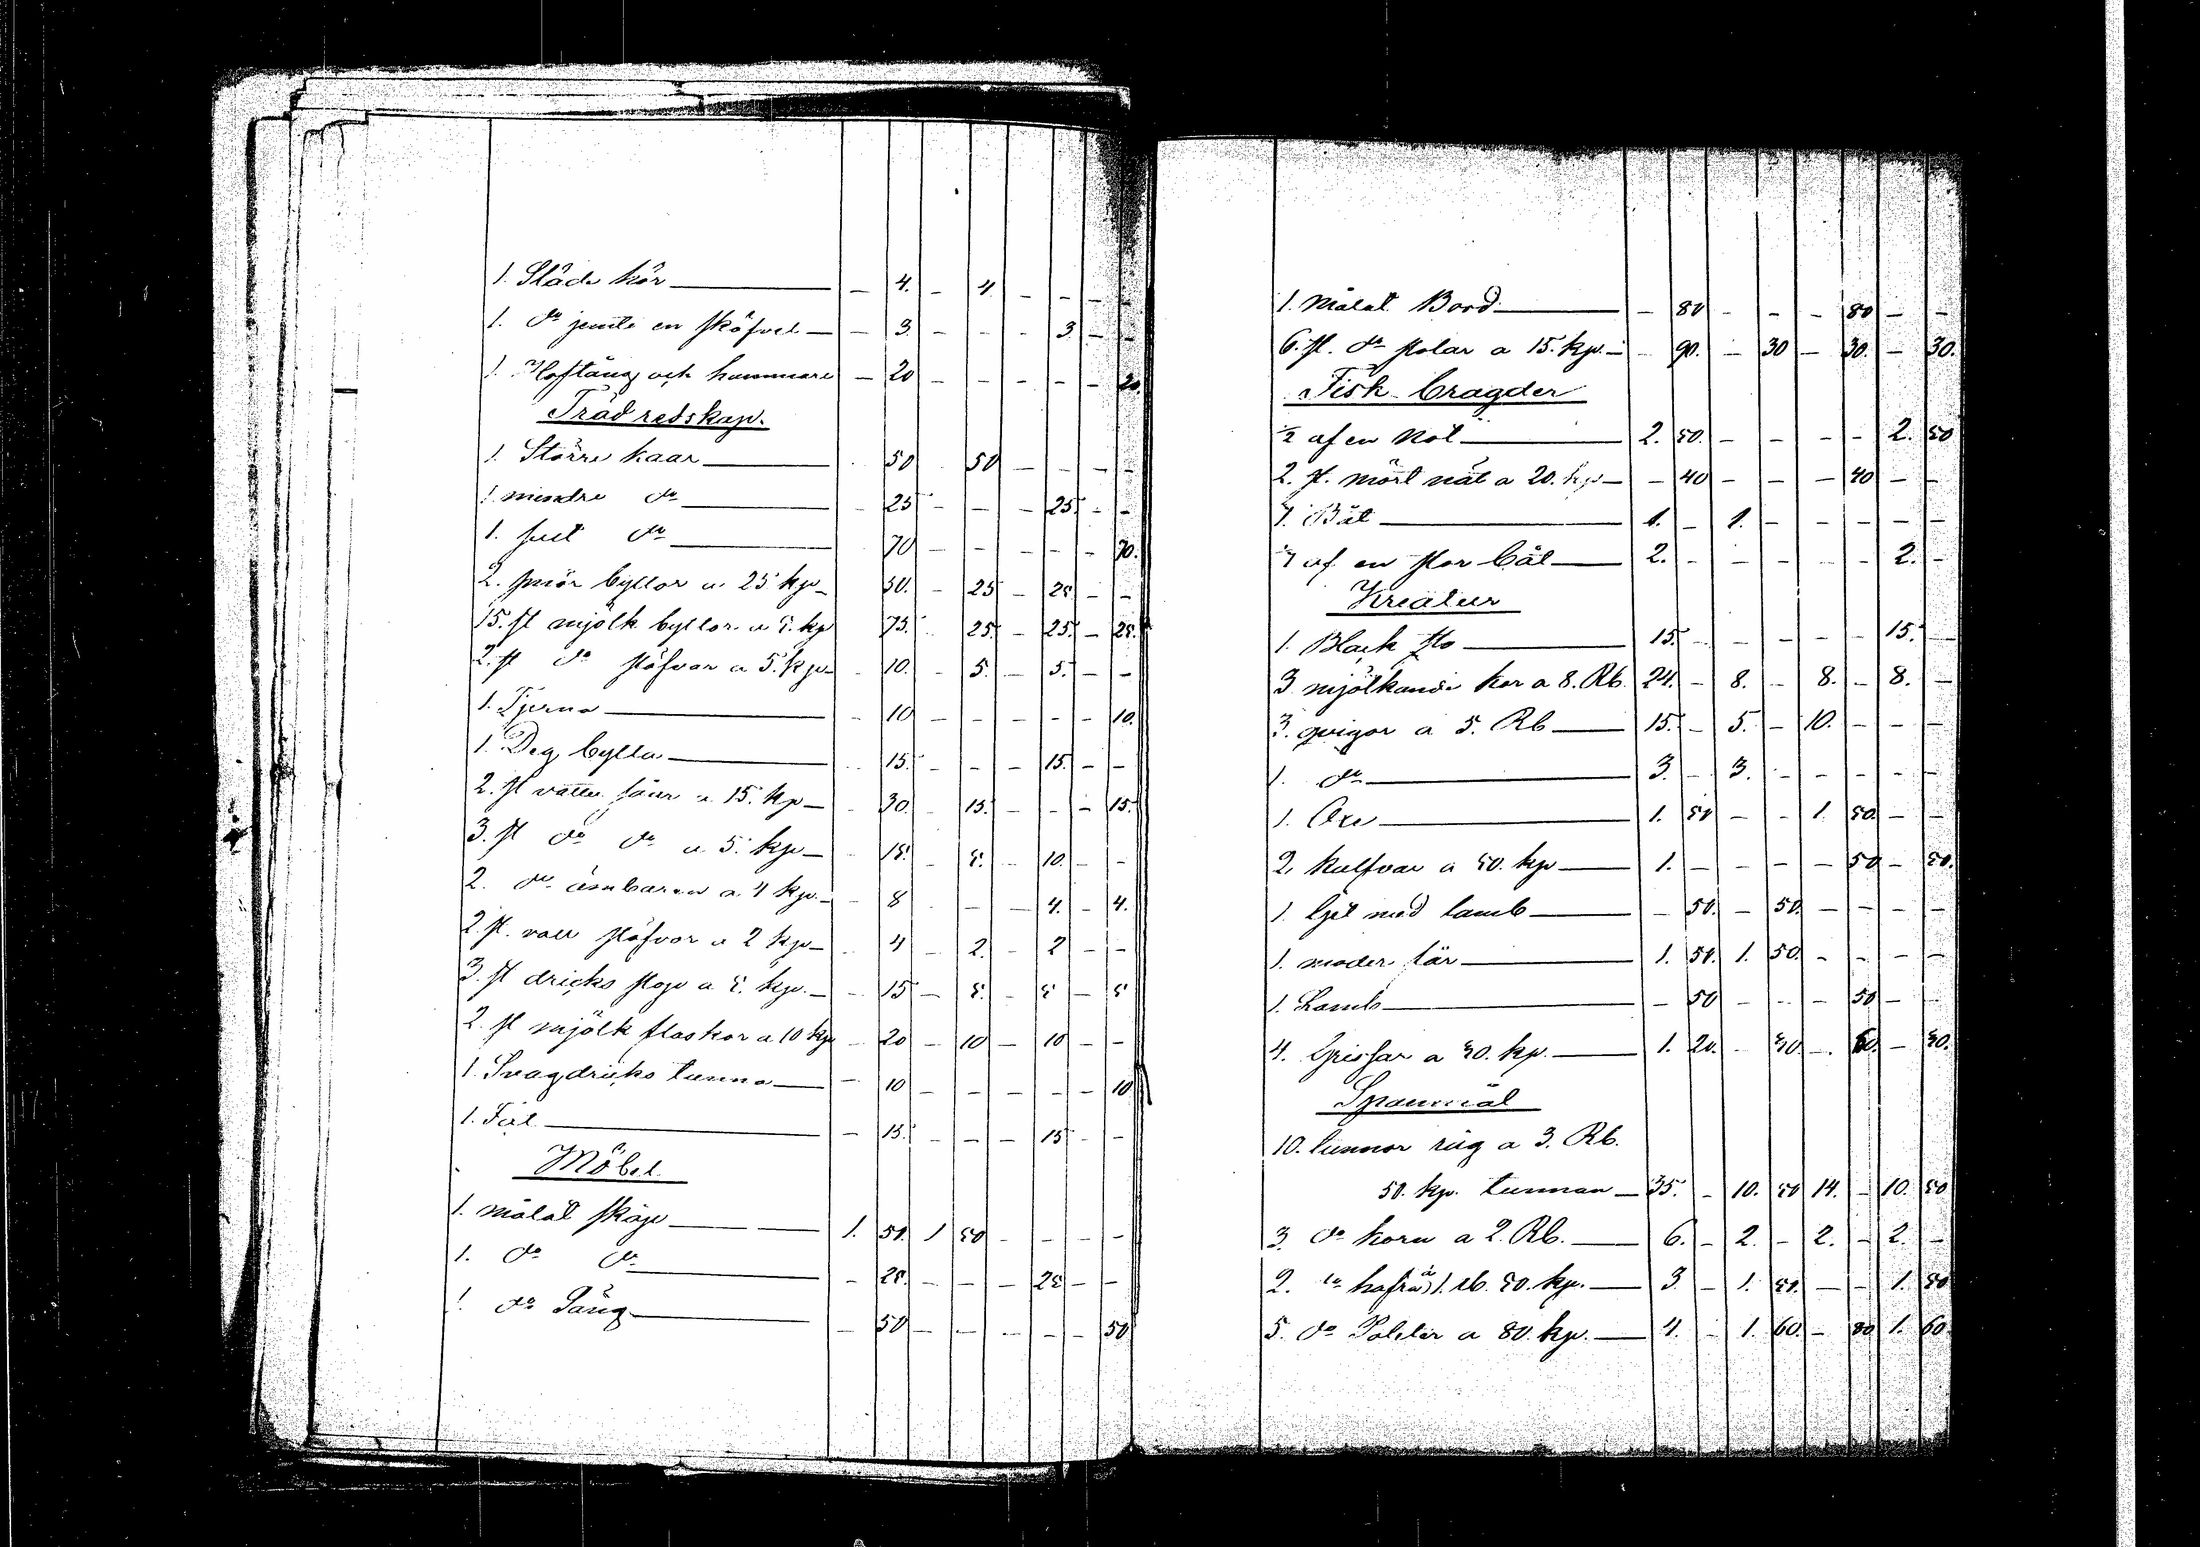 1. Släde kör — — 4. — 4 — — — —
1. do jemte en sköfvel — — 3. — — — 3. — —
1. Hoftång och hammare — 20 — — — — — 20.
Träd redskap.
1. Större kaar — 50 50 — — — —
1. mindre do — 25 — — — 25. — —
1. do — 70 — — — — — 70.
2. smör byttor a 25 kp — 50. — 25 — 25. — —
15. st mjölk byttor a 5. kp 75. 25. — 25. — 25.
2. st do stöfvor a 5. kp — 10. — 5. — 5. — —
1. Tjerna — 10 — — — — — 10.
1. Deg bytta — 15. — — — 15. — —
2. st vatten såar a 15. kp — 30. 15. — — — 15.
3. st do do a 5. kp — 15. — 5. — 10. — —
2. do ämbaren a 4 kp. — 8 — — — 4. — 4.
2. st. stöfvor a 2 kp — 4 — 2. — 2 — —
3. st dricks stop a 5. kp. — 15 — 5. — 5 — 5
2. st mjölk flaskor a 10 kp — 20 — 10 — 10 — —
1. Svagdricks tunna — 10 — — — — — 10
1. — 15. — — — 15 — —
Möbel.
1. målat skåp — 1. 50. 1 50 — — — —
1. do do — — 25. — — — 25 — —
1. do Säng — — 50 — — — — — 50
1. målat Bord — — 80 — — — 80 — —
6. st. do stolar a 15. kp. — 90. — 30 — 30. — 30.
Fisk bragder
1/2 af en Not — 2. 50. — — — — 2. 50
2. st. mört nät a 20. kp — — 40 — — — 40 — —
1. Båt — 1. — 1. — — — — —
af en stor båt — 2. — — — — — 2. —
Kreatur
1. Black sto — 15. — — — — — 15. —
3 mjölkande kor a 8. Rb. 24. — 8. — 8. — 8. —
3. qvigor a 5. Rb — 15. — 5. — 10. — — —
1. do — 3. — 3. — — — — —
1. Oxe — 1. 50 — — 1. 50. — —
2. kalfvar a 50. kp — 1. — — — — 50 — 50.
1. Get med lamb — — 50. — 50. — — — —
1. moder får — 1. 50. 1. 50. — — — —
1. Lamb — — 50 — — — 50 — —
4. Grisfar a 30. kp. — 1. 20. — 30. — 60. — 30.
Spannmål
10. tunnor råg a 3. Rb.
50. kp. tunnan — 35. — 10. 50 14. — 10. 50
3. do korn a 2. Rb. — 6. — 2. — 2. — 2. —
2. do hafra à 1. rb. 50. kp. — 3. — 1. 50. — — 1. 50
5. do Potäter a 80. kp. — 4. — 1. 60. — 80 1. 60.